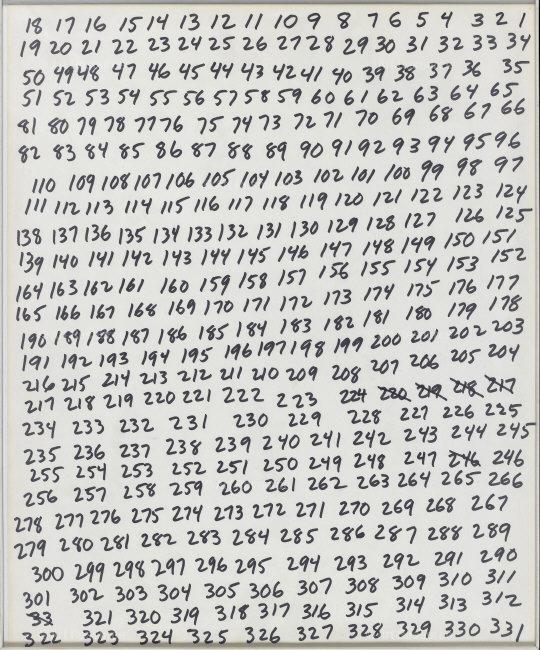 18 17 16 15 14 13 12 11 10 9 8 7 6 5 4 3 2 1
19 20 21 22 23 24 25 26 27 28 29 30 31 32 33 34
50 49 48 47 46 45 44 43 42 41 40 39 38 37 36 35
51 52 53 54 55 56 57 58 59 60 61 62 63 64 65
81 80 79 78 77 76 75 74 73 72 71 70 69 68 67 66
82 83 84 85 86 87 88 89 90 91 92 93 94 95 96
110 109 108 107 106 105 104 103 102 101 100 99 98 97
111 112 113 114 115 116 117 118 119 120 121 122 123 124
138 137 136 135 134 133 132 131 130 129 128 127 126 125
139 140 141 142 143 144 145 146 147 148 149 150 151
164 163 162 161 160 159 158 157 156 155 154 153 152
165 166 167 168 169 170 171 172 173 174 175 176 177
190 189 188 187 186 185 184 183 182 181 180 179 178
191 192 193 194 195 196 197 198 199 200 201 202 203
216 215 214 213 212 211 210 209 208 207 206 205 204
217 218 219 220 221 222 223 224 220 219 218 217
234 233 232 231 230 229 228 227 226 225
235 236 237 238 239 240 241 242 243 244 245
255 254 253 252 251 250 249 248 247 246 246
256 257 258 259 260 261 262 263 264 265 266
278 277 276 275 274 273 272 271 270 269 268 267
279 280 281 282 283 284 285 286 287 288 289
300 299 298 297 296 295 294 293 292 291 290
301 302 303 304 305 306 307 308 309 310 311
33 321 320 319 318 317 316 315 314 313 312
322 323 324 325 326 327 328 329 330 331